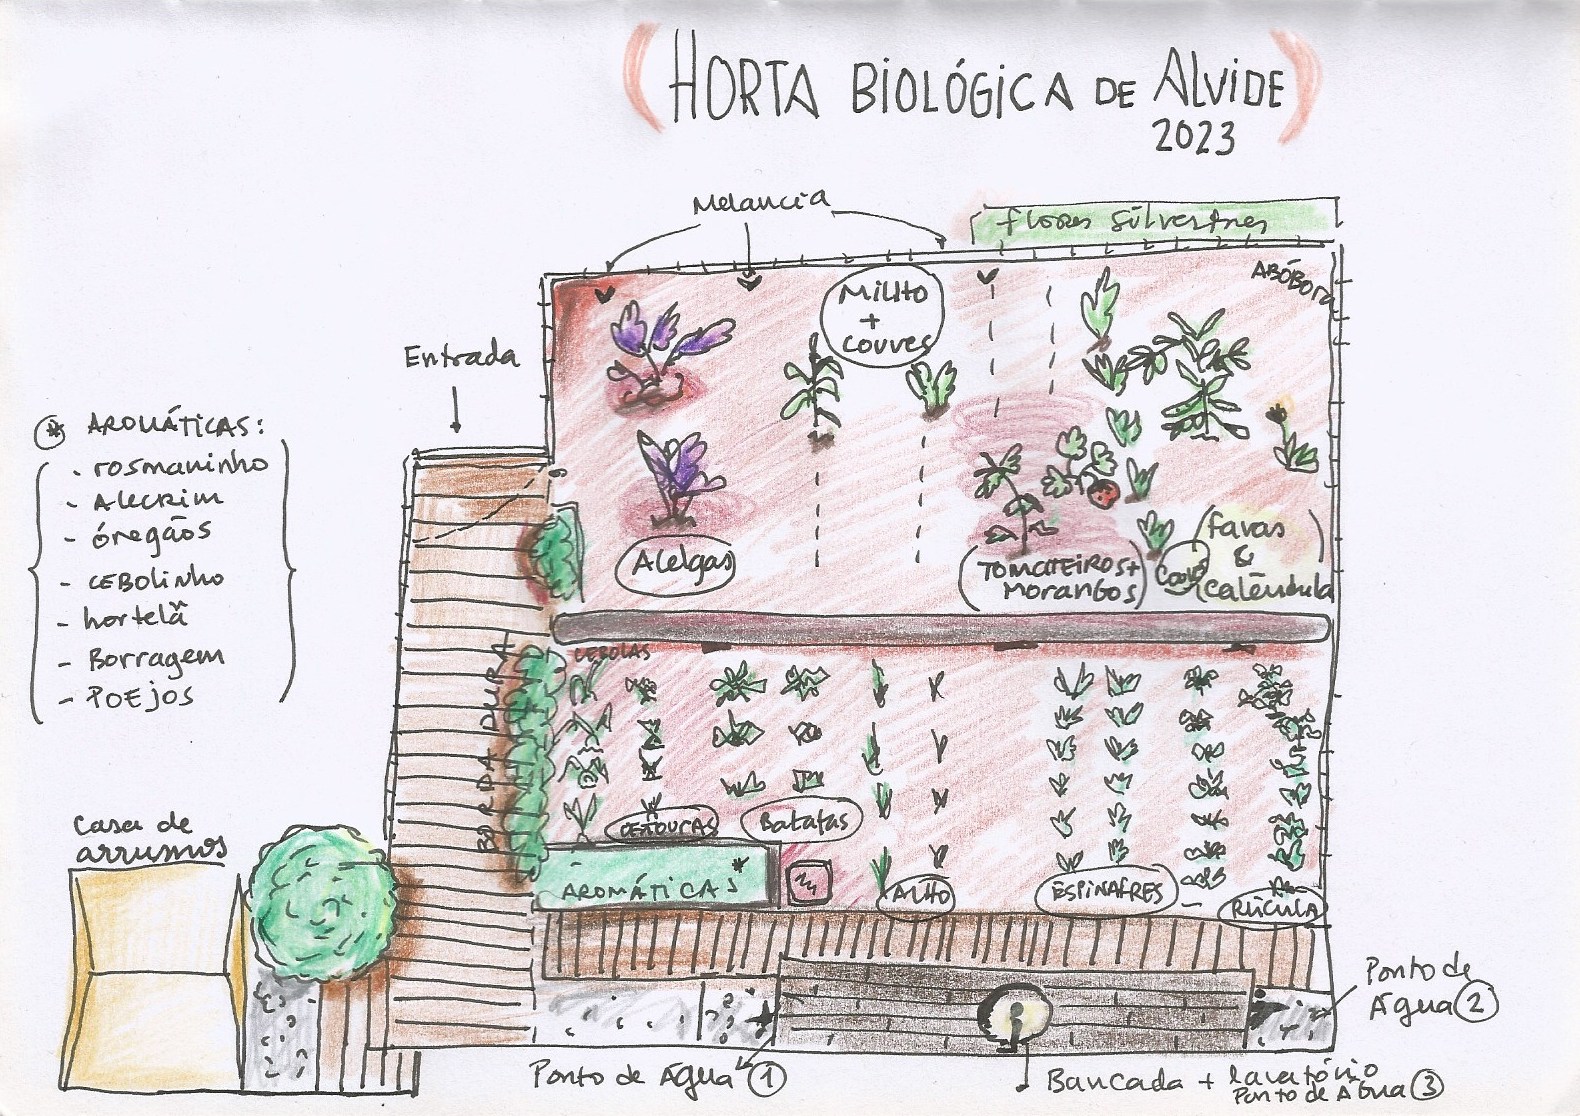 (HORTA BIOLÓGICA DE ALVIDE)
2023
Melancia
flores silvestres
ABÓBORA
Milho
+
couves
Entrada
* AROMÁTICAS:
- rosmaninho
- Alecrim
- óregãos
- CEBOLINHO
- hortelã
- Borragem
- POEJOS
Acelgas
(TOMATEIROS +
Morangos)
Couve
(favas
&
Calêndula)
CEBOLAS
BORDADURA
CENOURAS
Batatas
AROMÁTICAS*
ALHO
ESPINAFRES
RÚCULA
Casa de
arrumos
Ponto de
Água 2
Ponto de Água 1
Bancada + lavatório
Ponto de Água 3